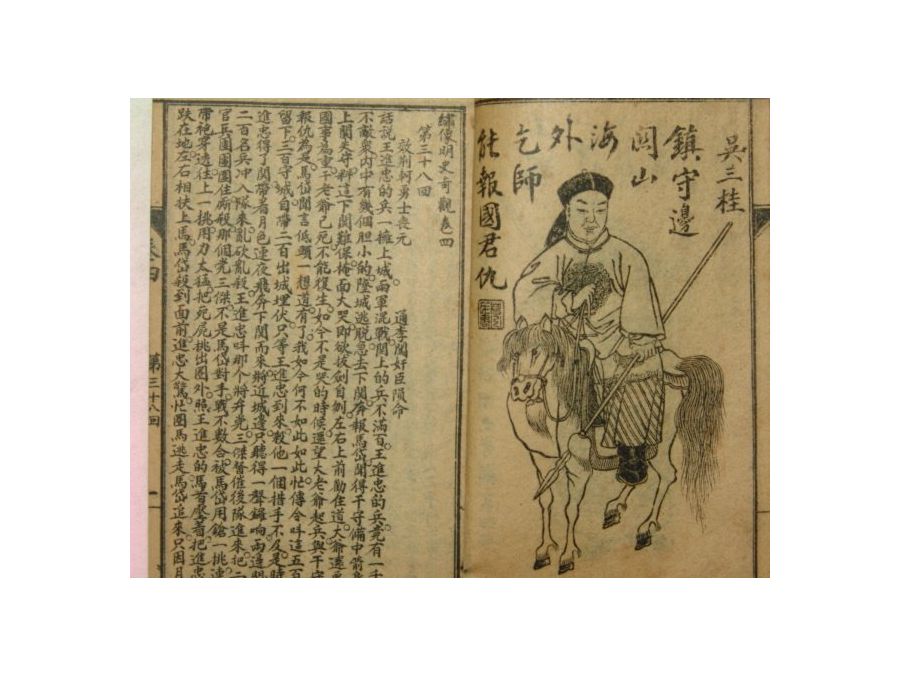 吳三桂
鎮守邊
関山
海
外
乞師
能報國君仇
繡像明史奇觀卷四
第三十八回
效荊軻勇士喪元 通李闖奸臣隕命
話說王進忠的兵一擁上城。兩軍混戰關上的兵不滿百。王進忠的兵竟有一千
不敵衆。內中有幾個胆小的墜城逃脫。急去下關奔報馬岱。聞得干守備中箭
上關失守。料這下關難保。掩面大哭。即欲拔劍自刎。左右上前勸住道。大爺
國事為重。干老爺已死不能復生。如今不是哭的時候。還望大老爺起兵與干守
報仇為是。馬岱聞言。低頭一想道。有了。我如今何不如此如此。忙傳令吽這五百
留下三百守城。自帶二百出城埋伏。只等王進忠到來。殺他一個措手不及。是時
進忠得了關帶着月色連夜飛奔下關而來。將近城邊。只聽得一聲鑼响。兩邊
二百名兵冲入隊來亂砍亂殺。王進忠吽那個將弁堯三傑督催後隊進來。把二
官兵團團圍住廝殺。那個堯三傑不是馬岱對手。戰不數合。被馬岱用鎗一挑連
帶袍穿透往上一挑。用力太猛把死屍挑出圈外。照王進忠的馬首壓着。把進忠
跌在地。左右相扶上馬。馬岱殺到面前。進忠大驚。忙圈馬逃走。馬岱追來。只因月
卷四
第三十八回
一